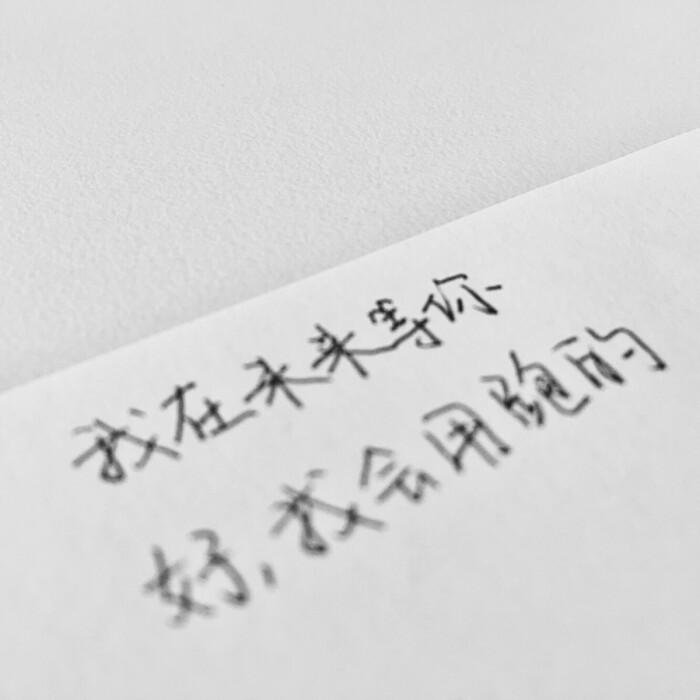 我在未来等你
好,我会用跑的